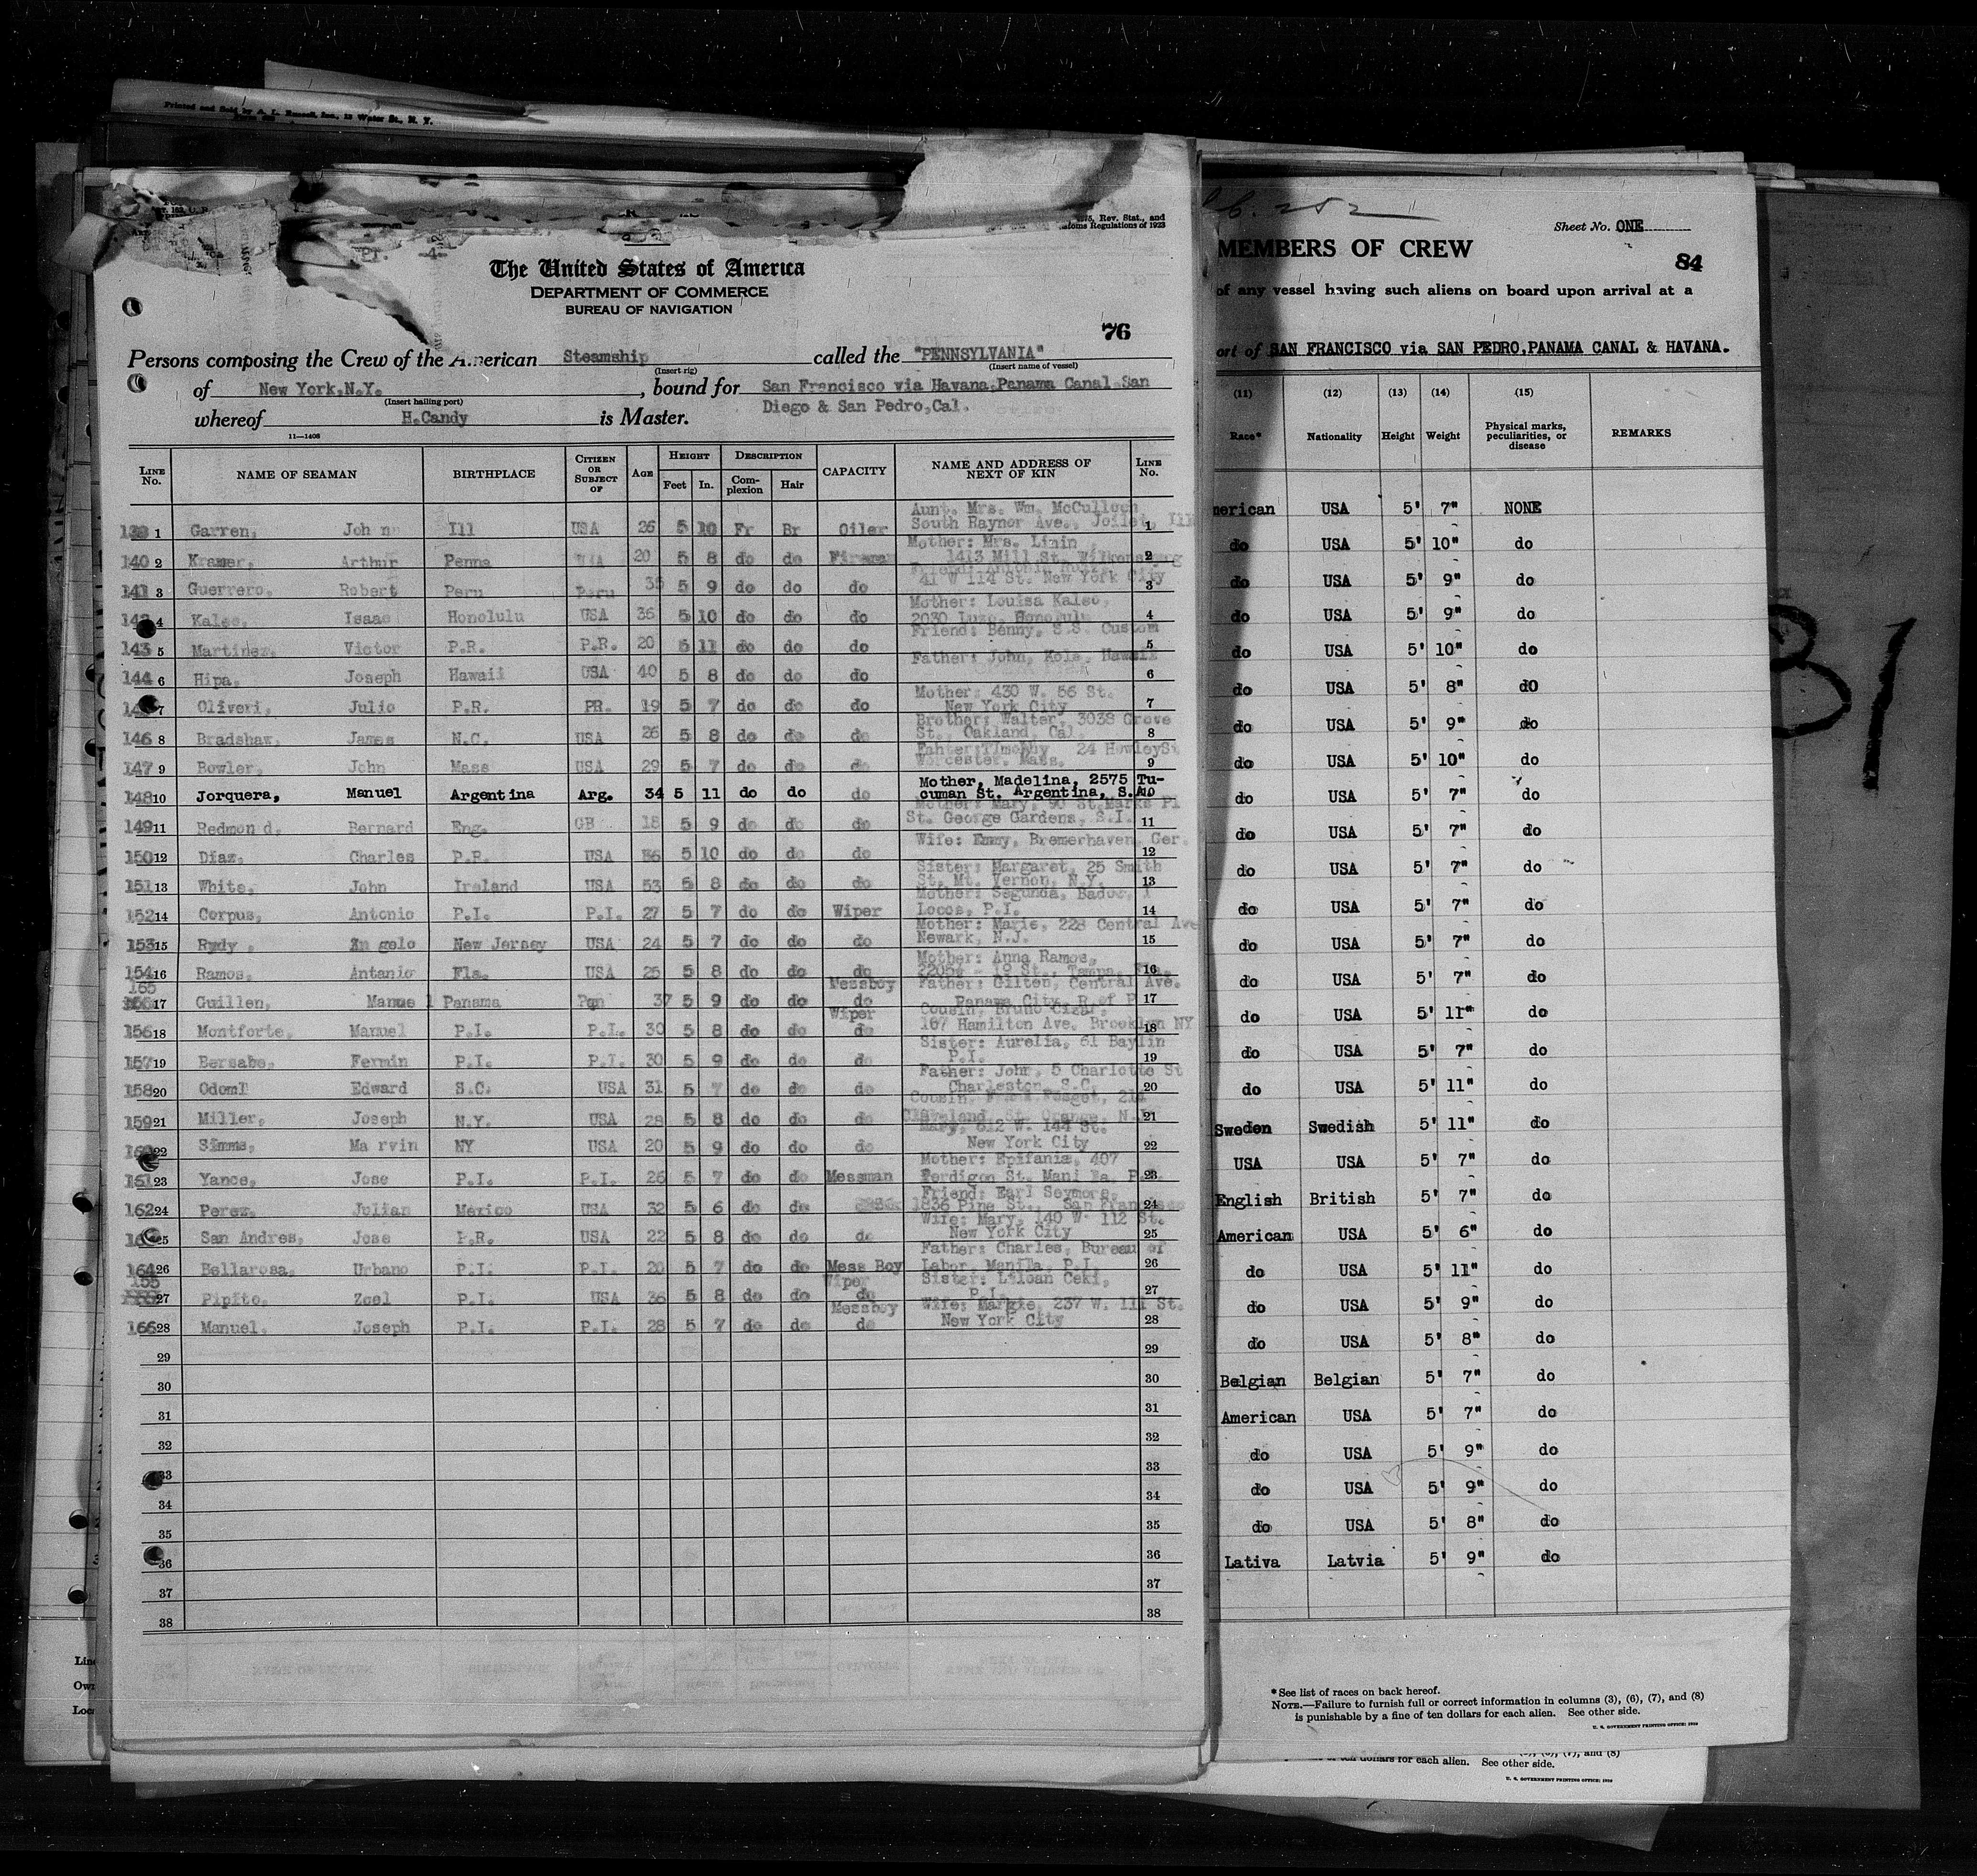 Printed and Sold by A. L. Russell, Inc., 12 Water St., N. Y.
Rev. Stat., and
Regulations of 1923
The United States of America
DEPARTMENT OF COMMERCE
BUREAU OF NAVIGATION
76
Persons composing the Crew of the American Steamship called the "PENNSYLVANIA"
(Insert rig) (Insert name of vessel)
of New York,N.Y. , bound for San Francisco via Havana,Panama Canal San
(Insert hailing port)
Diego & San Pedro,Cal.
whereof H.Candy is Master.
11—1408
LINE No. NAME OF SEAMAN BIRTHPLACE CITIZEN OR SUBJECT OF AGE HEIGHT Feet In. DESCRIPTION Complexion Hair CAPACITY NAME AND ADDRESS OF NEXT OF KIN LINE No.
Aunt. Mrs. Wm. McCulloch
1 Garren, John Ill USA 26 5 10 Fr Br Oiler South Raynor Ave., Joilet, Ill 1
Mother: Mrs.
140 2 Kramer, Arthur Penna 20 5 8 do do Fireman 1413 Mill St. 2
141 3 Guerrero, Robert Peru Peru 35 5 9 do do do 41 W 114 St. New York City 3
Mother: Louisa
4 Isaac Honolulu USA 36 5 10 do do do 2030 Honolulu 4
Friend: Benny, S.S. Custom
143 5 Martinez, Victor P.R. P.R. 20 5 11 do do do 5
Father: John, Kole, Hawaii
144 6 Hipa, Joseph Hawaii USA 40 5 8 do do do 6
Mother: 430 W. 56 St.
7 Oliveri, Julio P.R. PR. 19 5 7 do do do New York City 7
Brother: Walter, 3038 Grove
146 8 Bradshaw, James N.C. USA 26 5 8 do do do St., Oakland, Cal. 8
24
147 9 Bowler, John Mass USA 29 5 7 do do do Worcester, Mass. 9
Mother, Madelina, 2575 Tu-
148 10 Jorquera, Manuel Argentina Arg. 34 5 11 do do do cuman St. Argentina, S.A. 10
Mother: Mary, 90 St.Marks Pl
149 11 Redmond, Bernard Eng. GB 18 5 9 do do do St. George Gardens, S.I. 11
Wife: Emmy, Bremerhaven, Ger.
150 12 Diaz, Charles P.R. USA 36 5 10 do do do 12
Sister: Margaret, 25 Smith
151 13 White, John Ireland USA 53 5 8 do do do St. Mt. Vernon, N.Y. 13
Mother: Segunda, Badoc,
152 14 Corpus, Antonio P.I. P.I. 27 5 7 do do Wiper Locos, P.I. 14
Mother: Marie, 228 Central Ave
153 15 Rudy, Angelo New Jersey USA 24 5 7 do do do Newark, N.J. 15
Mother: Anna Ramos,
154 16 Ramos, Antanio Fla. USA 25 5 8 do do do St., Tampa, Fla. 16
165 Messboy Father: Gilton, Central Ave.
17 Guillen, Manuel Panama Pan 37 5 9 do do do Panama City, R.of P 17
Wiper Cousin, Bruno
156 18 Montforte, Manuel P.I. P.I. 30 5 8 do do do 167 Hamilton Ave. Brooklyn NY 18
Sister: Aurelia, 61 Baylin
157 19 Bersabe, Fermin P.I. P.I. 30 5 9 do do do P.I. 19
Father: John, 5 Charlotte St
158 20 Odoml Edward S.C. USA 31 5 7 do do do Charleston, S.C. 20
Cousin,
159 21 Miller, Joseph N.Y. USA 28 5 8 do do do St. Orange, N.J. 21
Mary, 612 W. 144 St.
22 Simms, Marvin NY USA 20 5 9 do do do New York City 22
Mother: Epifania, 407
161 23 Yance, Jose P.I. P.I. 26 5 7 do do Messman Perdigon St. Manila. P.I. 23
Friend: Earl Seymore,
162 24 Perez, Julian Mexico USA 32 5 6 do do 1836 Pine St., San Francisco 24
Wife: Mary, 140 W. 112 St.
25 San Andres, Jose P.R. USA 22 5 8 do do do New York City 25
Father: Charles, Bureau of
164 26 Bellarosa, Urbano P.I. P.I. 20 5 7 do do Mess Boy Labor, Manila, P.I. 26
155 Wiper Sister: Liloan Ceki,
27 Pipito, Zoel P.I. USA 36 5 8 do do do P.I. 27
Messboy Wife: Margie, 237 W. 111 St.
166 28 Manuel, Joseph P.I. P.I. 28 5 7 do do do New York City 28
29 29
30 30
31 31
32 32
33 33
34 34
35 35
36 36
37 37
38 38
Sheet No. ONE
MEMBERS OF CREW
84
of any vessel having such aliens on board upon arrival at a
port of SAN FRANCISCO via SAN PEDRO,PANAMA CANAL & HAVANA.
(11) (12) (13) (14) (15)
Race* Nationality Height Weight Physical marks, peculiarities, or disease REMARKS
merican USA 5' 7" NONE
do USA 5' 10" do
do USA 5' 9" do
do USA 5' 9" do
do USA 5' 10" do
do USA 5' 8" dO
do USA 5' 9" do
do USA 5' 10" do
do USA 5' 7" do
do USA 5' 7" do
do USA 5' 7" do
do USA 5' 7" do
do USA 5' 7" do
do USA 5' 7" do
do USA 5' 11" do
do USA 5' 7" do
do USA 5' 11" do
Sweden Swedish 5' 11" do
USA USA 5' 7" do
English British 5' 7" do
American USA 5' 6" do
do USA 5' 11" do
do USA 5' 9" do
do USA 5' 8" do
Belgian Belgian 5' 7" do
American USA 5' 7" do
do USA 5' 9" do
do USA 5' 9" do
do USA 5' 8" do
Lativa Latvia 5' 9" do
*See list of races on back hereof.
NOTE.—Failure to furnish full or correct information in columns (3), (6), (7), and (8)
is punishable by a fine of ten dollars for each alien. See other side.
U. S. GOVERNMENT PRINTING OFFICE:
of ten dollars for each alien. See other side.
U. S. GOVERNMENT PRINTING OFFICE: